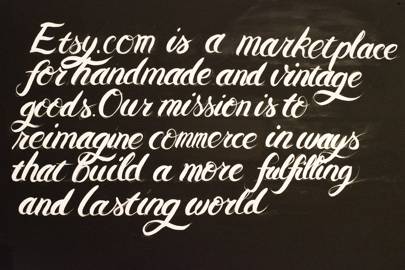 Etsy.com is a marketplace
for handmade and vintage
goods. Our mission is to
reimagine commerce in ways
that build a more fulfilling
and lasting world